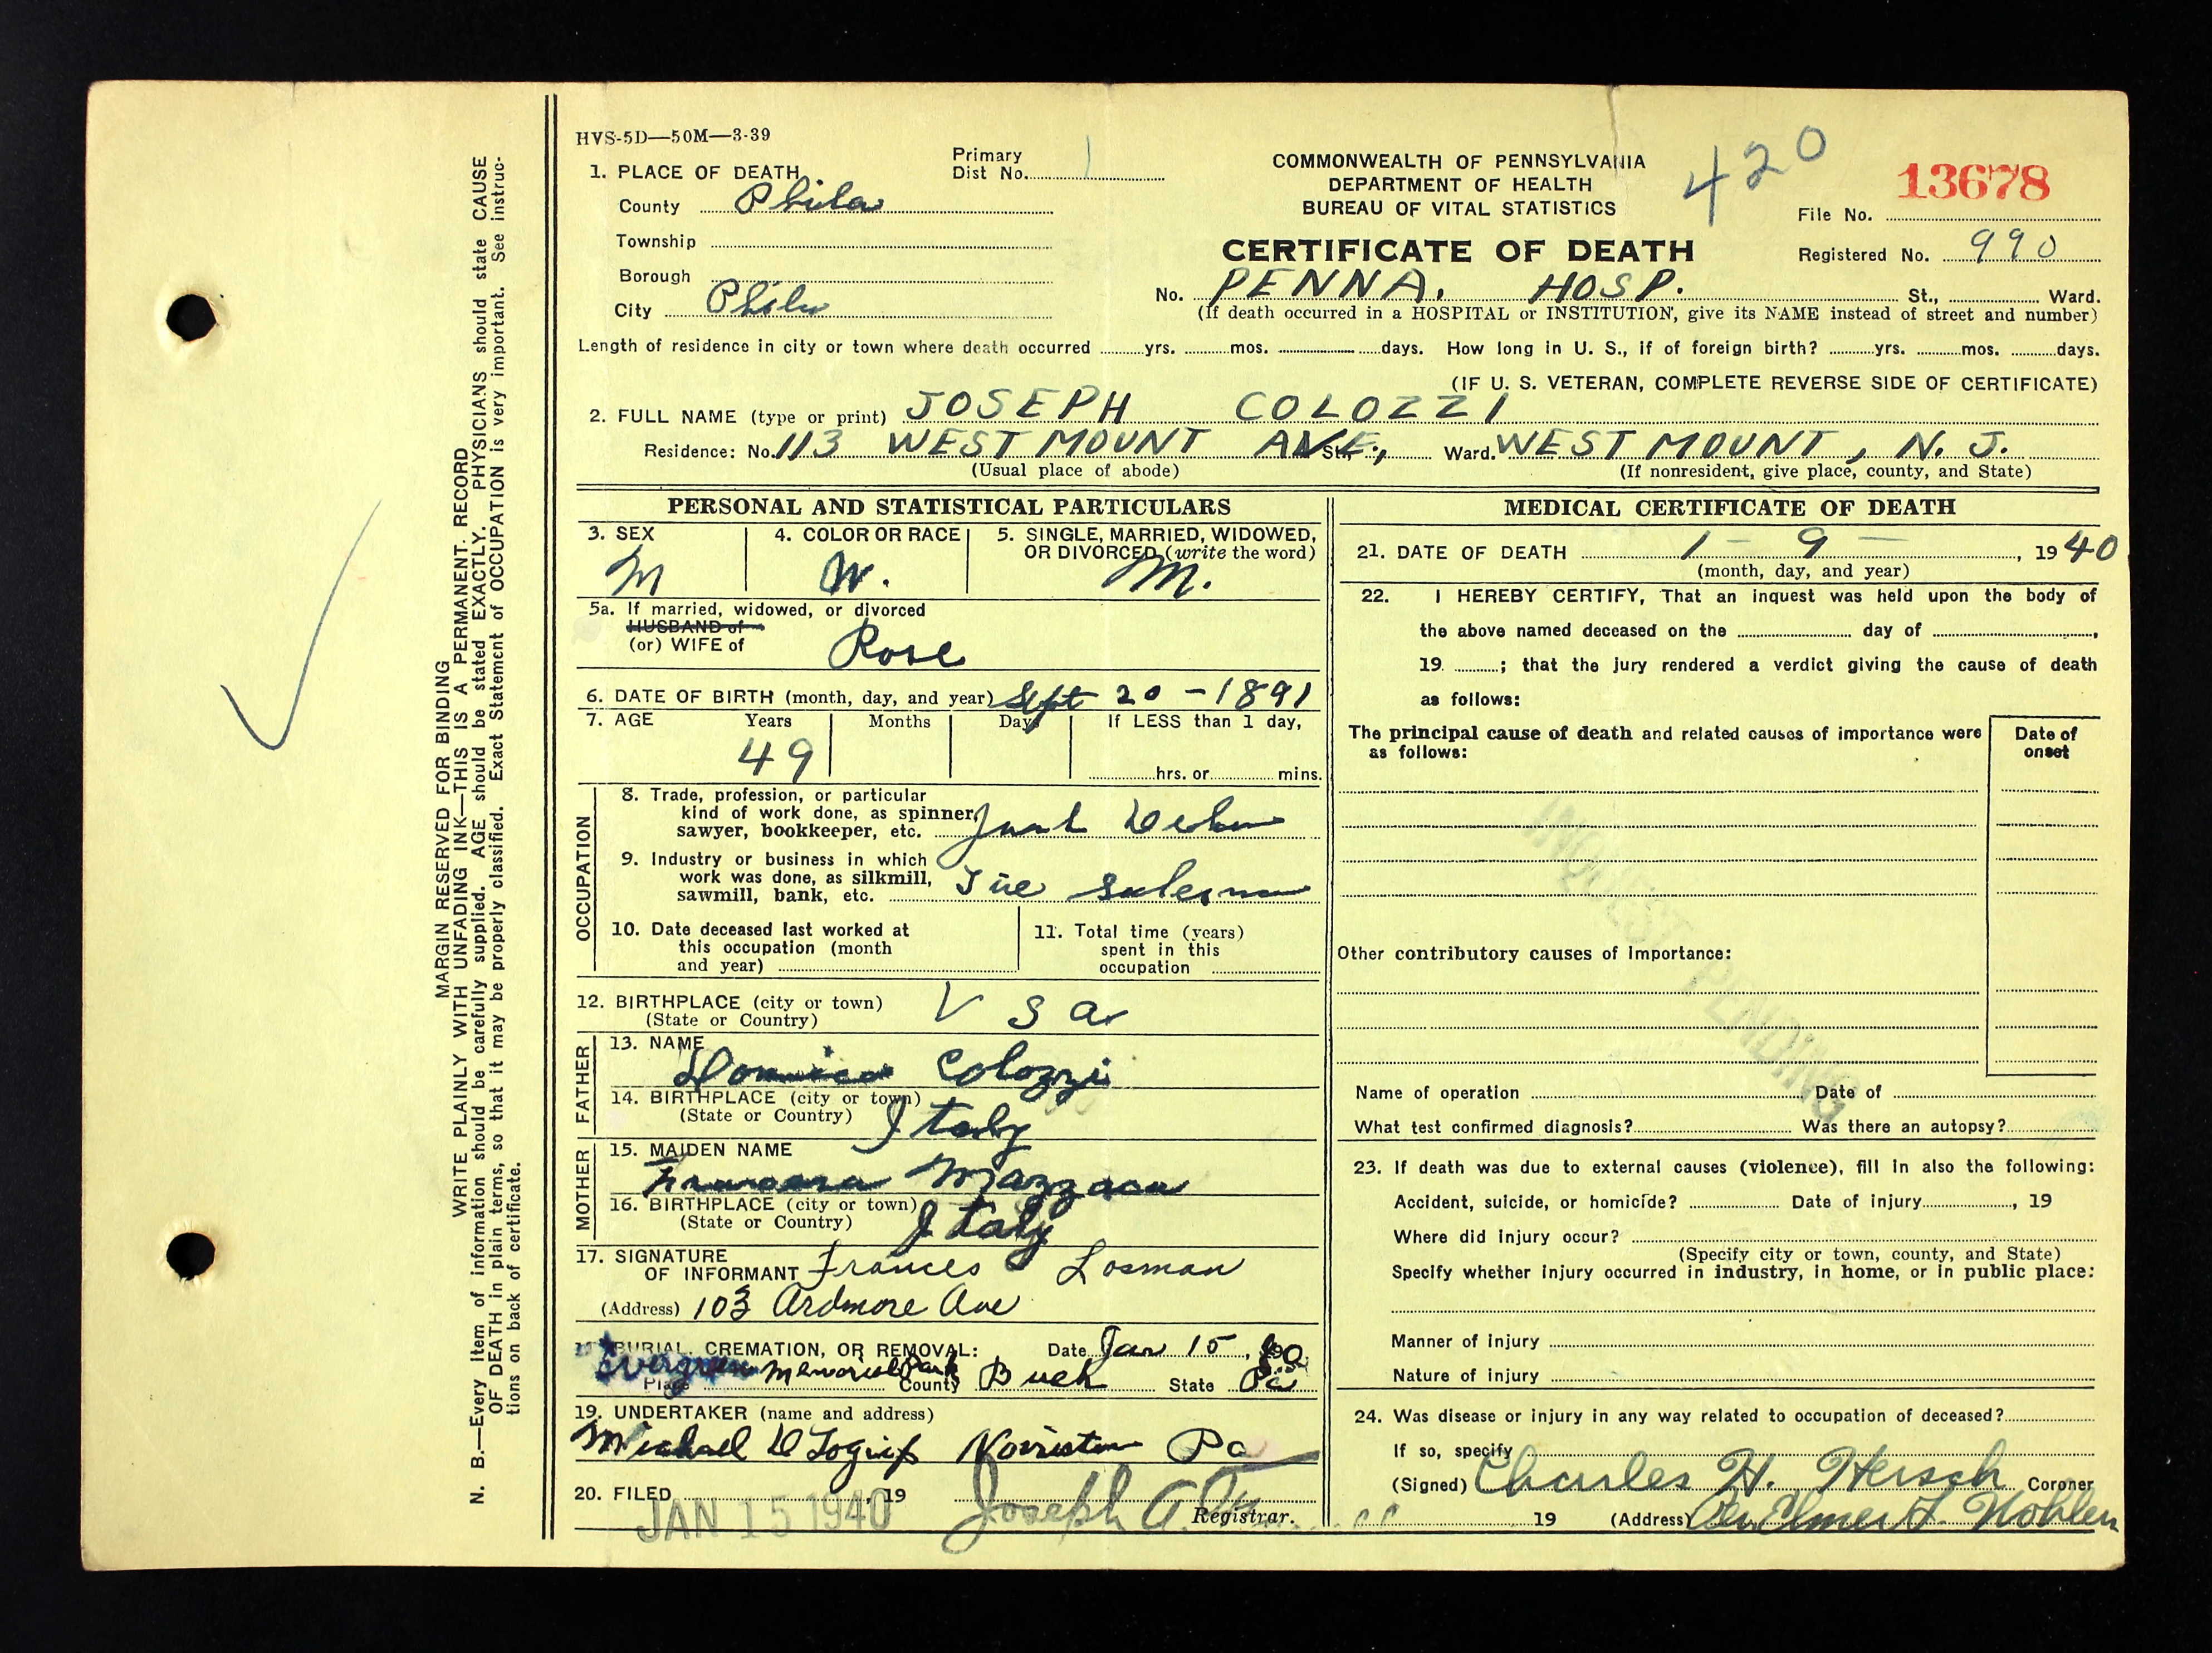 HVS-5D—50M—3-39
1. PLACE OF DEATH
County Phila
Township
Borough
City Phila
Primary
Dist No. 1
COMMONWEALTH OF PENNSYLVANIA
DEPARTMENT OF HEALTH
BUREAU OF VITAL STATISTICS
CERTIFICATE OF DEATH
420
13678
File No.
Registered No. 990
No. PENNA. HOSP. St., Ward.
(If death occurred in a HOSPITAL or INSTITUTION, give its NAME instead of street and number)
Length of residence in city or town where death occurred yrs. mos. days. How long in U. S., if of foreign birth? yrs. mos. days.
(IF U. S. VETERAN, COMPLETE REVERSE SIDE OF CERTIFICATE)
2. FULL NAME (type or print) JOSEPH COLOZZI
Residence: No. 113 WEST MOUNT AVE., St., Ward. WEST MOUNT, N. J.
(Usual place of abode) (If nonresident, give place, county, and State)
PERSONAL AND STATISTICAL PARTICULARS
3. SEX
M
4. COLOR OR RACE
W.
5. SINGLE, MARRIED, WIDOWED,
OR DIVORCED (write the word)
M.
5a. If married, widowed, or divorced
HUSBAND of
(or) WIFE of Rose
6. DATE OF BIRTH (month, day, and year) Sept 20 - 1891
7. AGE Years Months Days If LESS than 1 day,
49 hrs. or mins.
OCCUPATION
8. Trade, profession, or particular
kind of work done, as spinner,
sawyer, bookkeeper, etc.
9. Industry or business in which
work was done, as silkmill,
sawmill, bank, etc.
10. Date deceased last worked at
this occupation (month
and year)
11. Total time (years)
spent in this
occupation
12. BIRTHPLACE (city or town)
(State or Country) U S a
FATHER
13. NAME
Colozzi
14. BIRTHPLACE (city or town)
(State or Country) Italy
MOTHER
15. MAIDEN NAME
16. BIRTHPLACE (city or town)
(State or Country) Italy
17. SIGNATURE
OF INFORMANT Frances Losman
(Address) 103 Ardmore Ave
BURIAL, CREMATION, OR REMOVAL: Date Jan 15, 40
Evergreen Memorial Park
Place County Buck State Pa
19. UNDERTAKER (name and address)
Michael Pa
20. FILED , 19
JAN 15 1940
Joseph A.
Registrar.
MEDICAL CERTIFICATE OF DEATH
21. DATE OF DEATH 1 - 9 - , 1940
(month, day, and year)
22. I HEREBY CERTIFY, That an inquest was held upon the body of
the above named deceased on the day of ,
19 ; that the jury rendered a verdict giving the cause of death
as follows:
The principal cause of death and related causes of importance were
as follows:
Date of
onset
INQUEST PENDING
Other contributory causes of importance:
Name of operation Date of
What test confirmed diagnosis? Was there an autopsy?
23. If death was due to external causes (violence), fill in also the following:
Accident, suicide, or homicide? Date of injury , 19
Where did injury occur?
(Specify city or town, county, and State)
Specify whether injury occurred in industry, in home, or in public place:
Manner of injury
Nature of injury
24. Was disease or injury in any way related to occupation of deceased?
If so, specify
(Signed) Charles H. Hersch Coroner
19 (Address) Per Elmer
MARGIN RESERVED FOR BINDING
WRITE PLAINLY WITH UNFADING INK—THIS IS A PERMANENT RECORD
N. B.—Every item of information should be carefully supplied. AGE should be stated EXACTLY. PHYSICIANS should state CAUSE
OF DEATH in plain terms, so that it may be properly classified. Exact Statement of OCCUPATION is very important. See instruc-
tions on back of certificate.